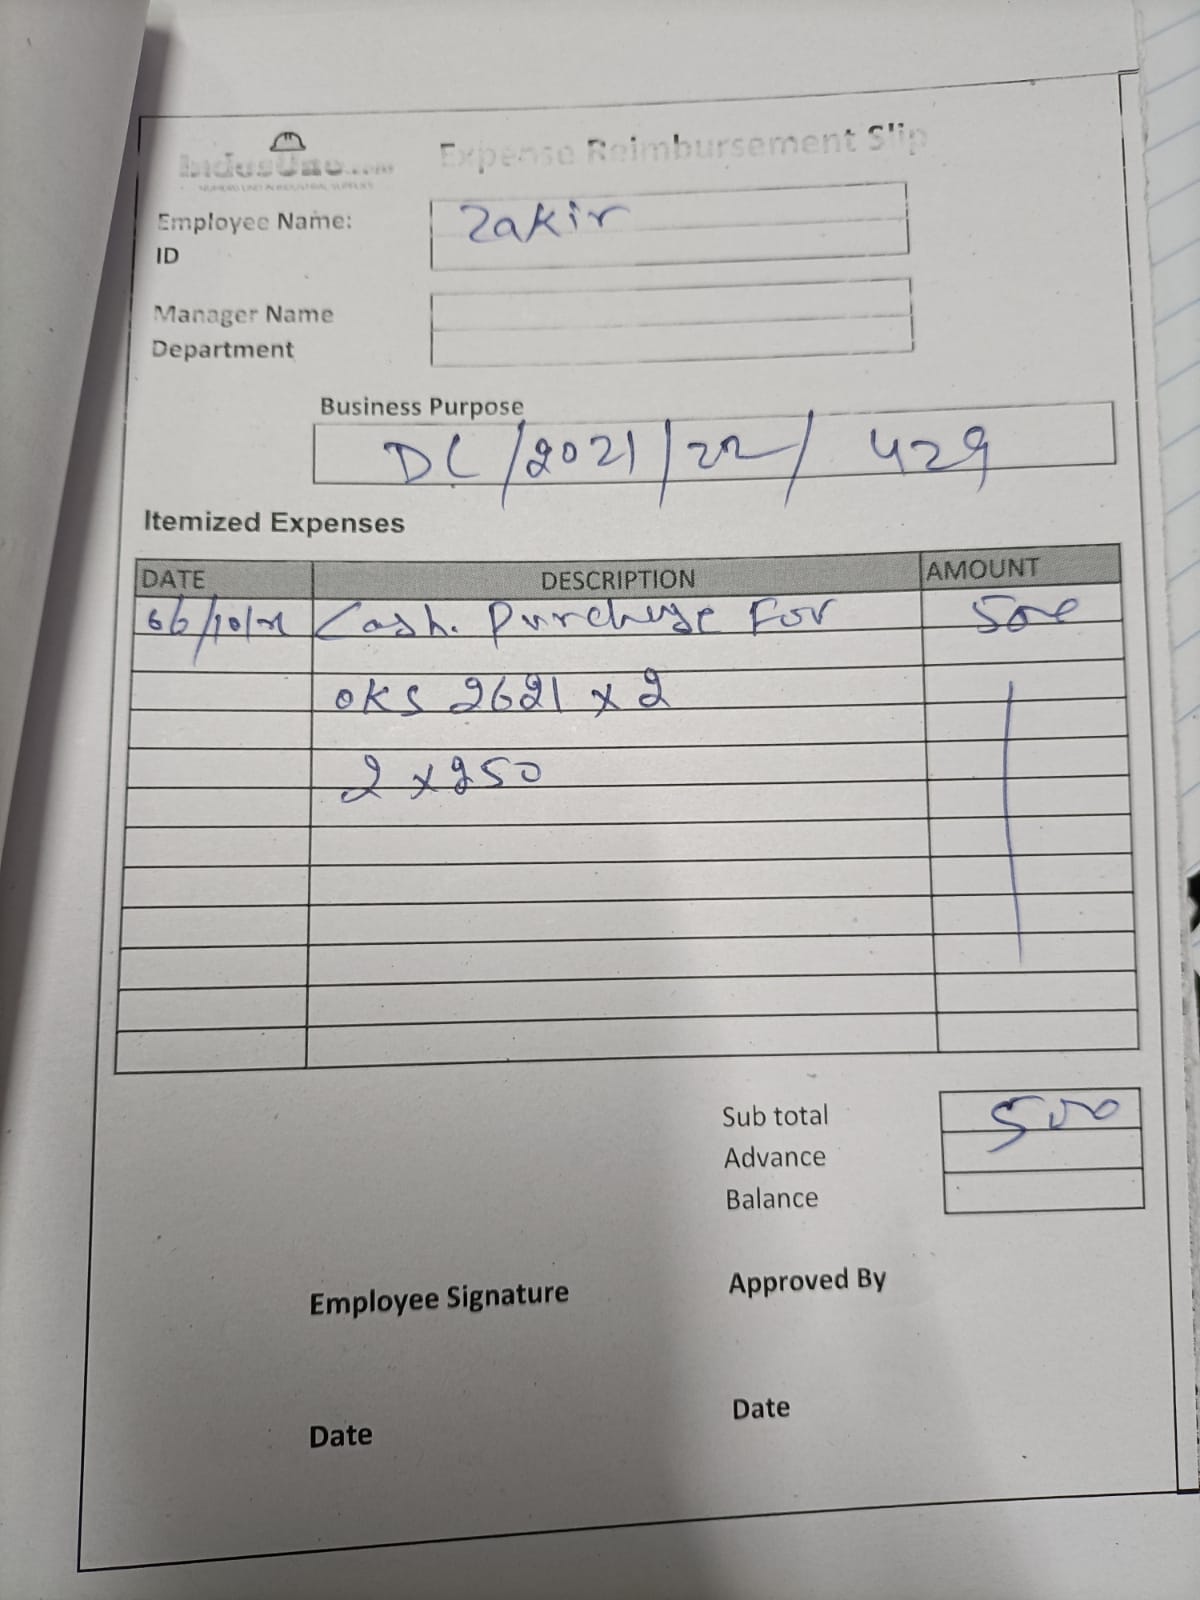 IndusUno.com
NUMERO UNO IN INDUSTRIAL SUPPLIES
Expense Reimbursement Slip
Employee Name: Zakir
ID
Manager Name
Department
Business Purpose
DC/2021/22/429
Itemized Expenses
DATE DESCRIPTION AMOUNT
06/10/21 Cash. Purchase For 500
OKS 2621 x 2
2 x 250
Sub total 500
Advance
Balance
Employee Signature Approved By
Date Date